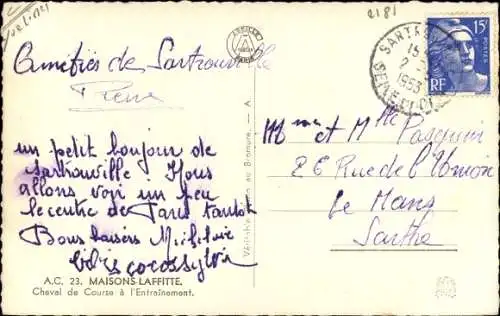 2181
Amitiés de Sartrouville
Pierre
un petit bonjour de
Sartrouville ! Nous
allons voir un peu
le centre de Paris tantôt
Bons baisers
A.C. 23. MAISONS-LAFFITTE.
Cheval de Course à l'Entraînement.
Véritable au Bromure. — A
SARTRO
15
2
1953
SEINE-ET-OI
15F
POSTES
RF
Mme et Mlle Pasquier
26 Rue de l'Union
Le Mans
Sarthe